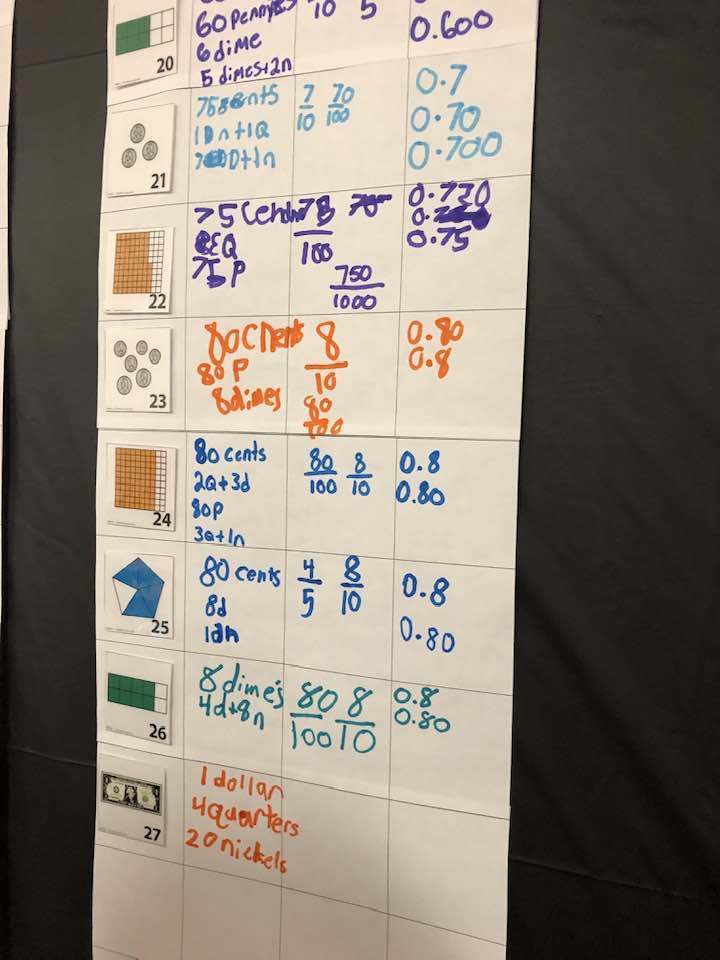 60 pennys
10 5
0.600
6 dime
5 dimes+2n
20
75 cents
7 70
10 100
0.7
0.70
0.700
21
75 Cents
78
100
750
1000
75 P
0.730
0.75
22
80 Cents
80 P
8 dimes
8
10
80
100
0.80
0.8
23
80 cents
2Q+3d
80p
3Q+1n
80 8
100 10
0.8
0.80
24
80 cents
8d
4 8
5 10
0.8
0.80
25
8 dime's
4d+8n
80 8
100 10
0.8
0.80
26
1 dollar
4 quarters
20 nickels
27